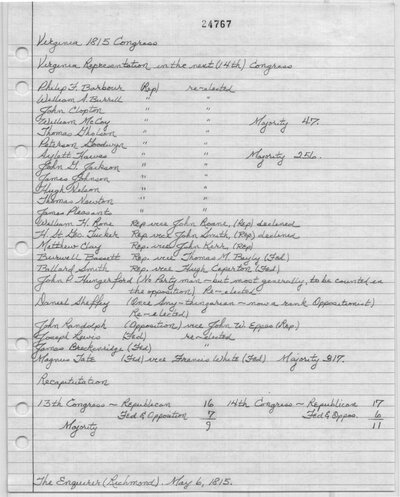 24767
Virginia 1815 Congress
Virginia Representation in the next (14th) Congress
Philip P. Barbour (Rep) re-elected
William A. Burwell " "
John Clopton " "
William McCoy " " Majority 47.
Thomas Gholson " "
Peterson Goodwyn " "
Aylett Hawes " " Majority 256.
John G. Jackson " "
James Johnson " "
Hugh Nelson " "
Thomas Newton " "
James Pleasants " "
William H. Roane Rep. vice John Roane, (Rep) declined
H. St. Geo. Tucker Rep. vice John Smith, (Rep) declined
Matthew Clay Rep. vice John Kerr, (Rep)
Burwell Bassett Rep. vice Thomas M. Bayly (Fed)
Ballard Smith Rep. vice Hugh Caperton (Fed)
John P. Hungerford (No Party man - but most generally, to be counted in
the opposition) Re-elected
Daniel Sheffey (Once - now a rank Oppositionist)
Re-elected
John Randolph (Opposition) vice John W. Eppes (Rep)
Joseph Lewis (Fed) re-elected
James Breckenridge (Fed) "
Magnus Tate (Fed) vice Francis White (Fed) Majority 317.
Recapitulation
13th Congress - Republican 16 14th Congress - Republican 17
Fed & Opposition 7 Fed & Oppos. 6
Majority 9 11
The Enquirer (Richmond). May 6, 1815.